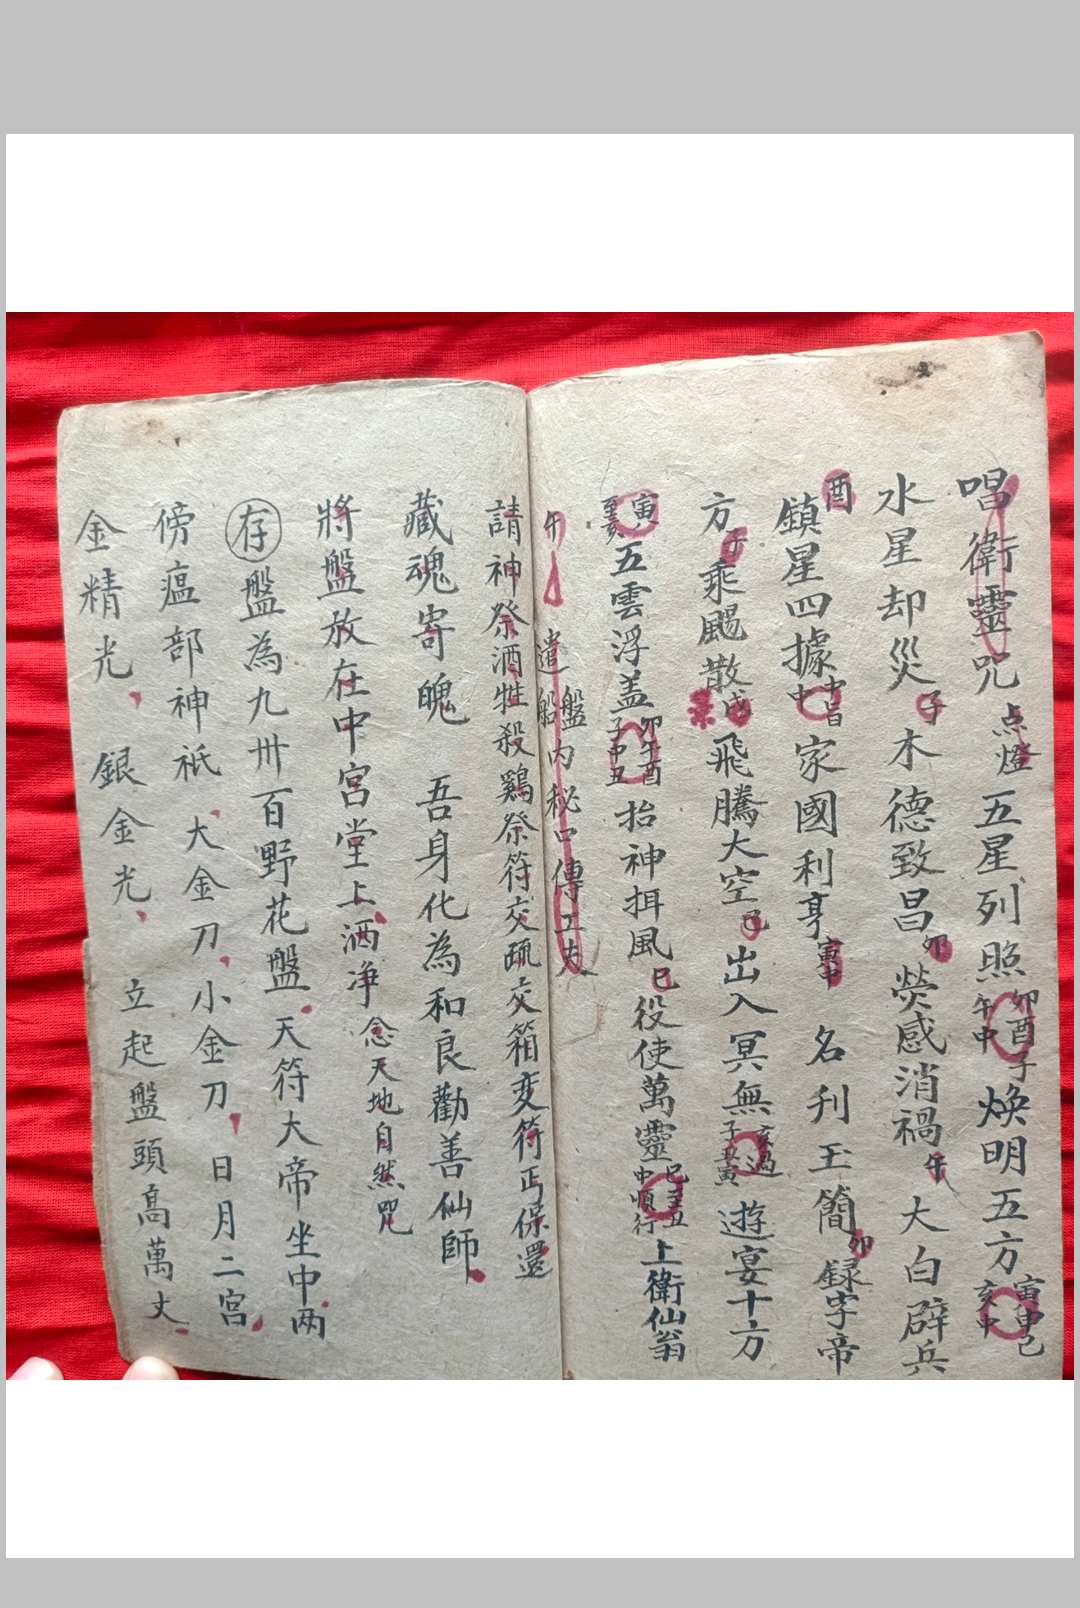 唱衛靈咒点燈五星列照卯酉子午申煥明五方寅申巳亥中
水星却災子木德致昌卯熒惑消禍午大白辟兵
酉鎮星四據家國利亨寅中名刋玉簡卯録字帝
方子乘飈散戌飛騰大空巳出入冥無遊宴十方
寅五雲浮盖卯午酉子中丑抬神揖風巳役使萬靈中順行上衛仙翁
午遣船盤内秘口傳工夫
請神祭酒牲殺鷄祭符交疏交箱变符丐保還
藏魂寄魄 吾身化為和良勸善仙師
將盤放在中宮堂上洒净念天地自然咒
存盤為九卅百野花盤天符大帝坐中两
傍瘟部神祇大金刀小金刀日月二宮
金精光 銀金光 立起盤頭高萬丈